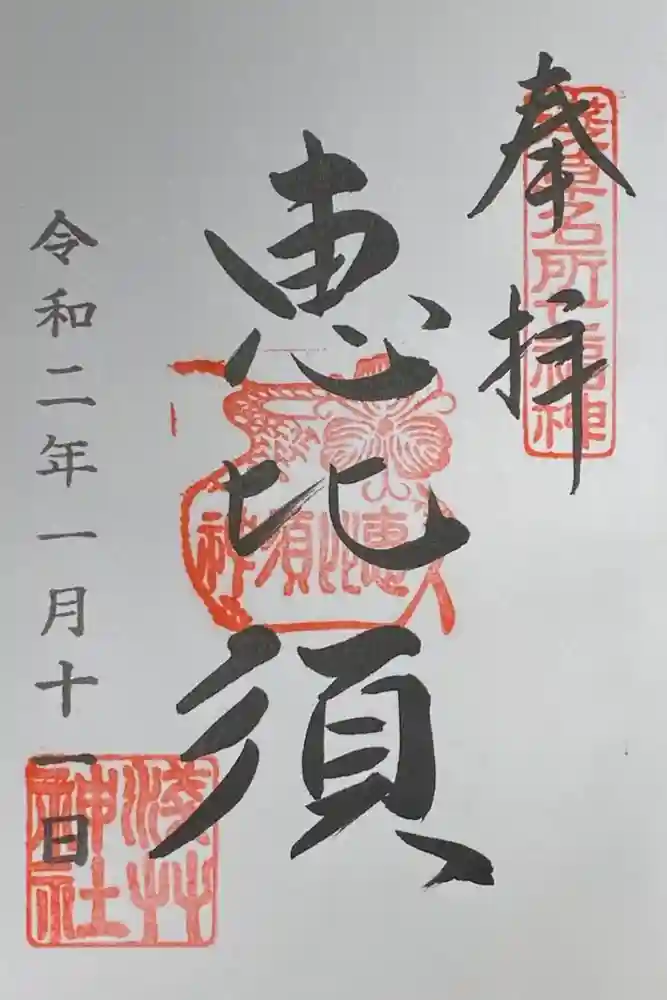 奉拝
淺草名所七福神
恵比須
恵比須神
令和二年一月十一日
淺草神社